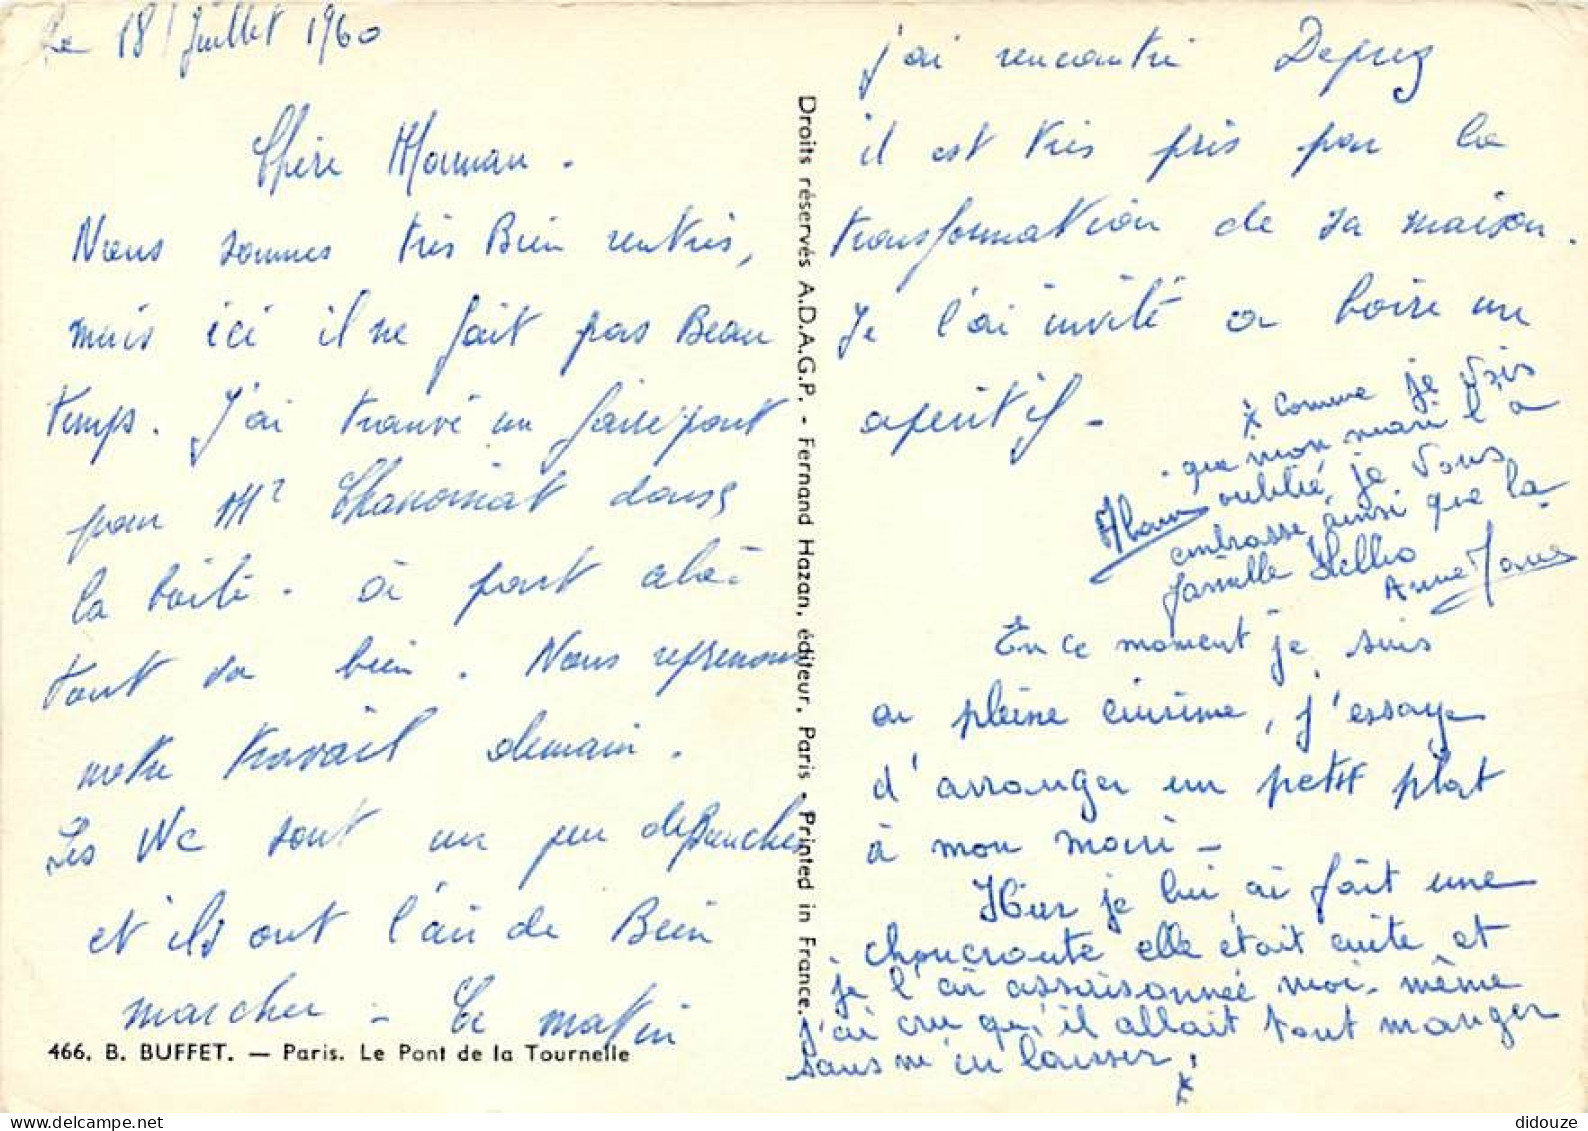 Le 18 Juillet 1960
Chère Maman.
Nous sommes très Bien rentrés,
mais ici il ne fait pas Beau
temps. J'ai trouvé un faire part
pour Mr dans
la boite. à part cela
tout va bien. Nous reprenons
notre travail demain.
Les Wc sont un peu
et ils ont l'air de Bien
marcher - Ce matin
j'ai rencontré Deprez
il est très pris par la
transformation de sa maison.
Je l'ai invité a boire un
aperitif -
x Comme je vois
que mon mari l'a
oublié, je vous
embrasse, ainsi que la
famille
Anne Marie
Alain
En ce moment je suis
en pleine cuisine, j'essaye
d'arranger un petit plat
à mon mari -
Hier je lui ai fait une
choucroute elle était cuite et
je l'ai assaisonnée moi-même
j'ai cru qu'il allait tout manger
sans m'en laisser! x
Droits réservés A.D.A.G.P. - Fernand Hazan, éditeur, Paris - Printed in France.
466. B. BUFFET. — Paris. Le Pont de la Tournelle
didouze